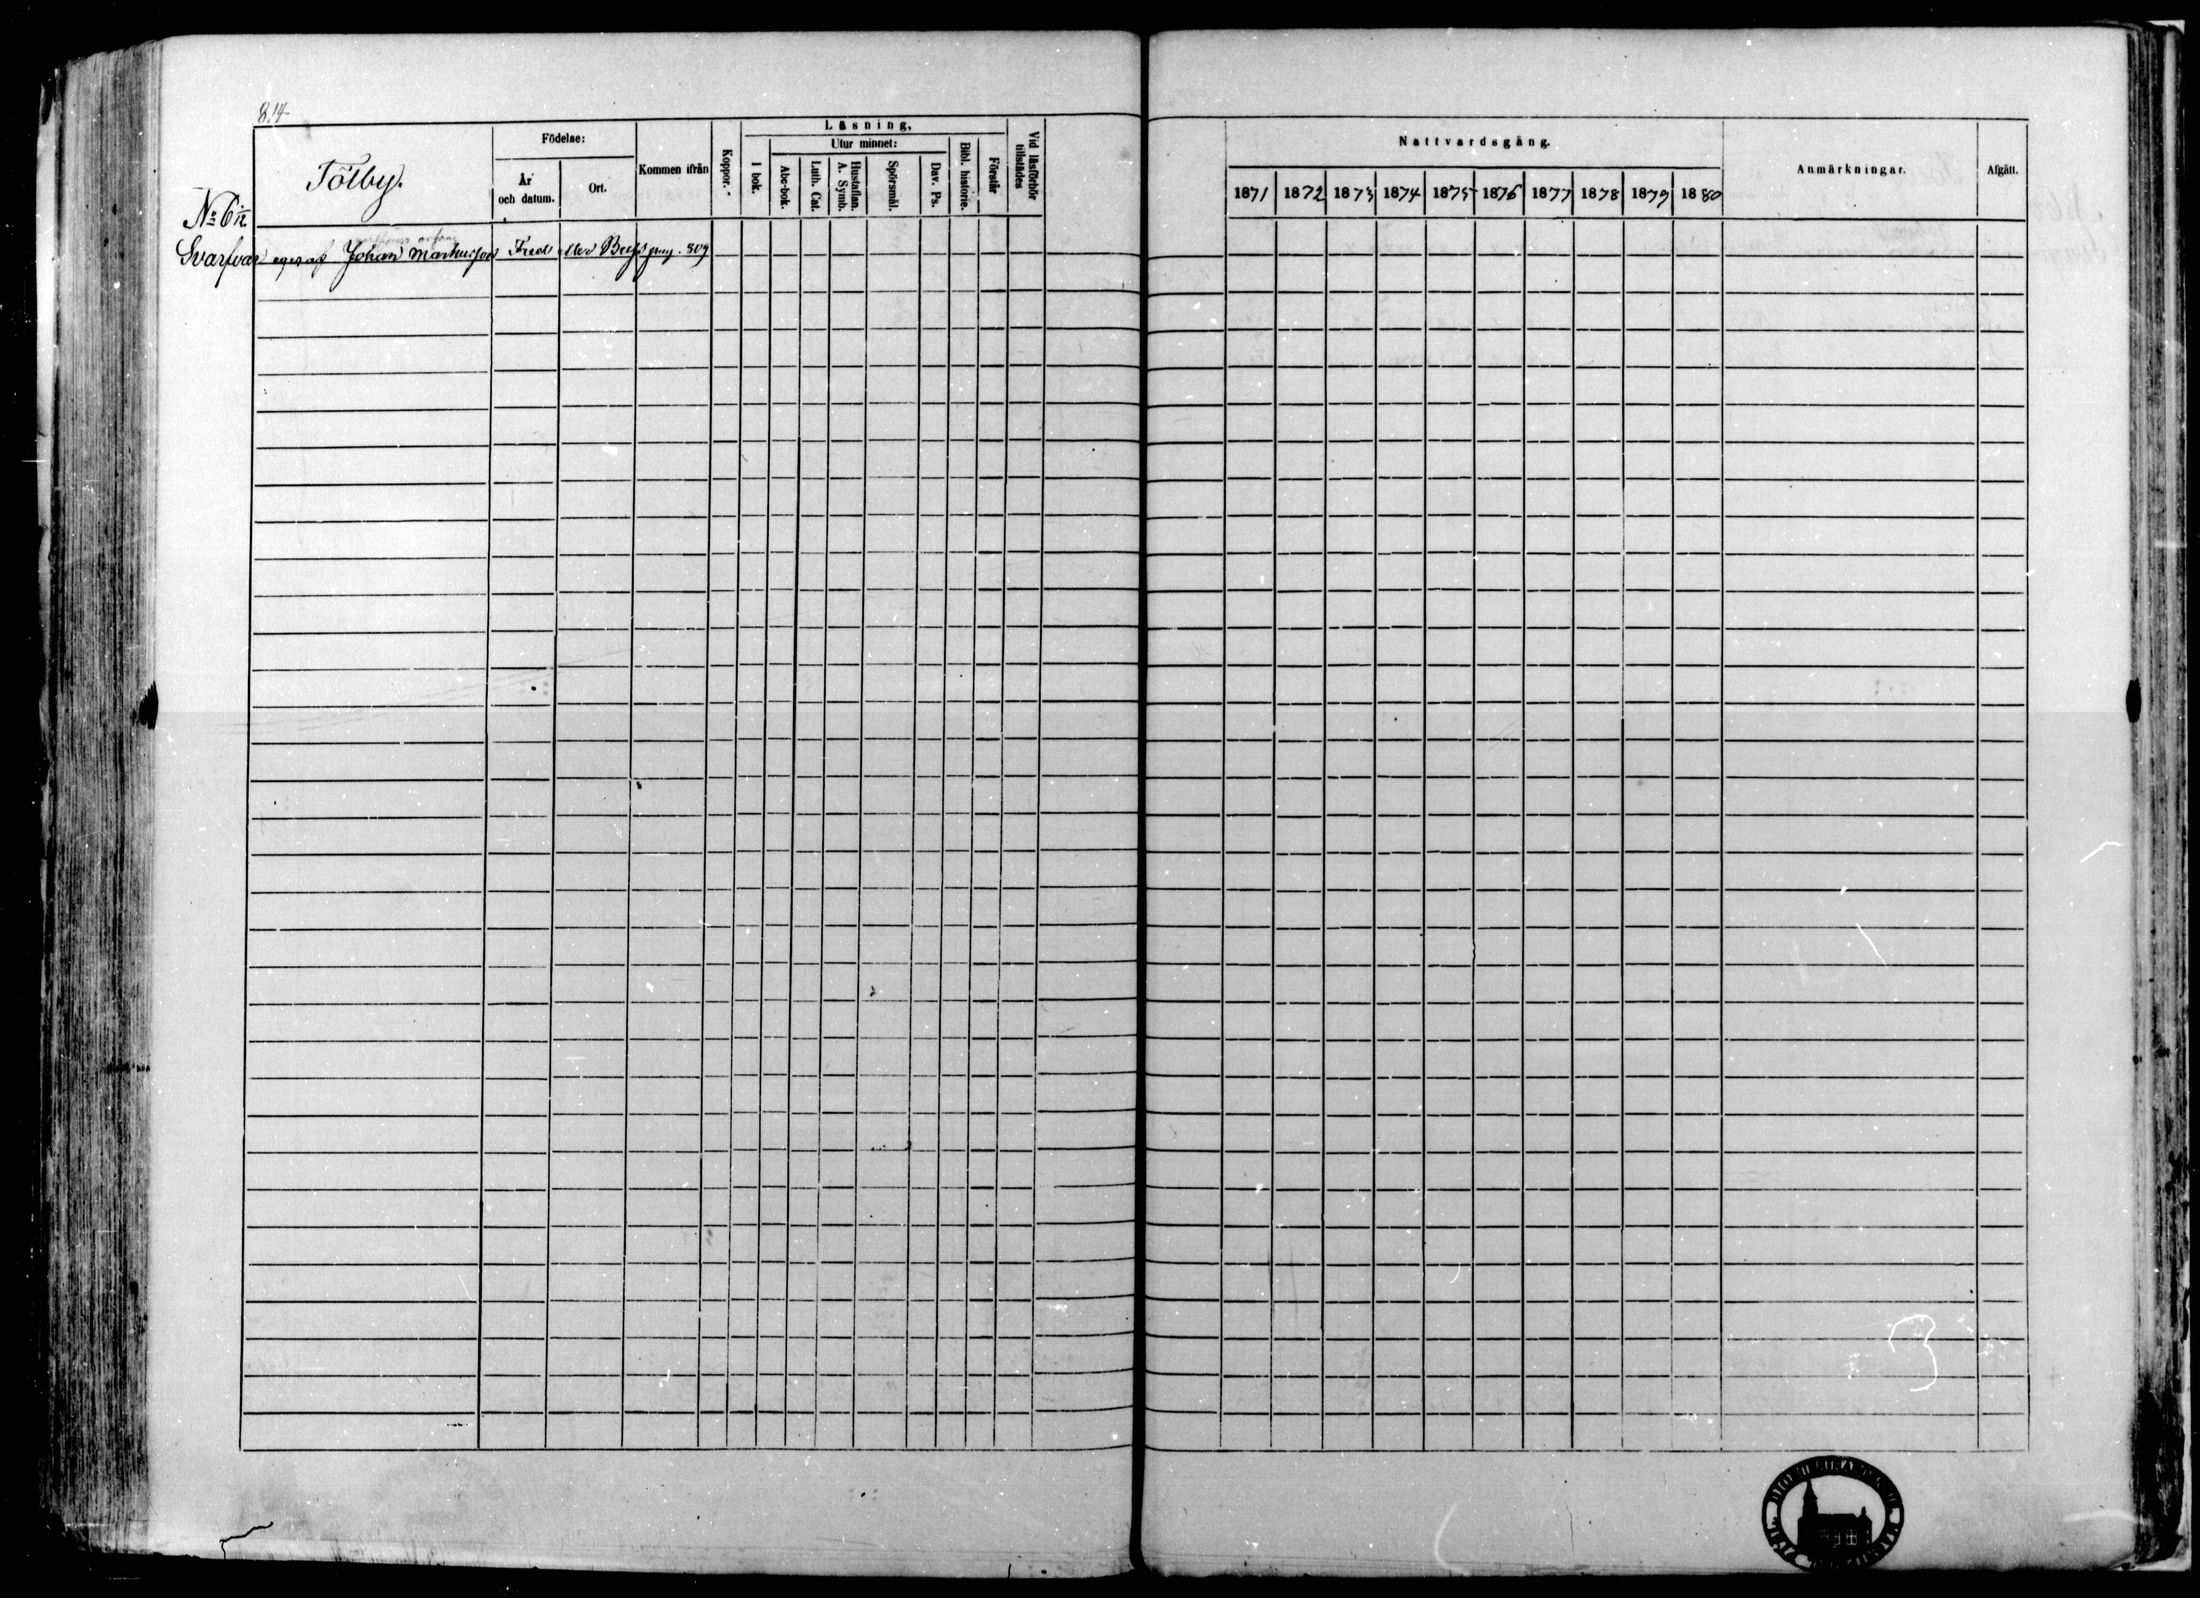 814
Tölby.
Födelse:
År och datum.
Ort.
Kommen ifrån
Koppor.
Läsning,
I bok.
Utur minnet:
Abc-bok.
Luth. Cat.
Hustaflan. A. Symb.
Spörsmål.
Dav. Ps.
Bibl. historie.
Förstår
Vid läsförhör tillstädes
Nattvardsgång.
1871 1872 1873 1874 1875 1876 1877 1878 1879 1880
Anmärkningar.
Afgått.
No 6 1/12
Svarfvar eges af Johan Markusson Fred eller pag. 809